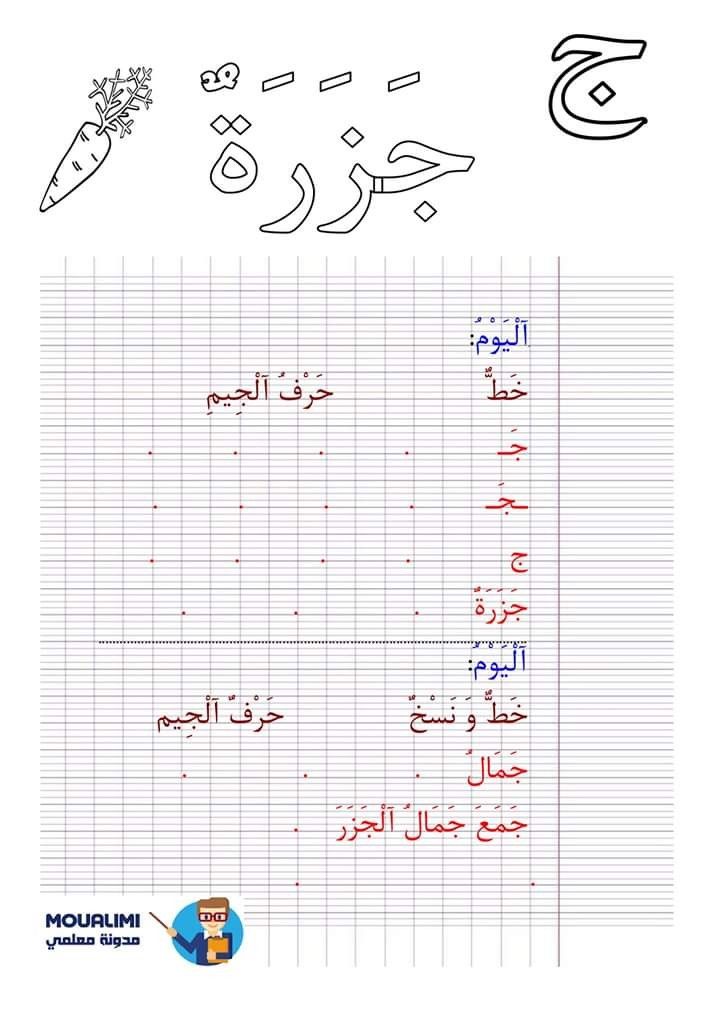 ج
جَزَرَةٌ
اَلْيَوْمُ:
خَطٌّ حَرْفُ اَلْجِيمِ
جَـ . . . .
ـجَـ . . . .
ج . . . .
جَزَرَةٌ . . .
اَلْيَوْمُ:
خَطٌّ وَ نَسْخٌ حَرْفٌ اَلْجِيم
جَمَالُ . . .
جَمَعَ جَمَالُ اَلْجَزَرَ .
. .
MOUALIMI
مدونة معلمي